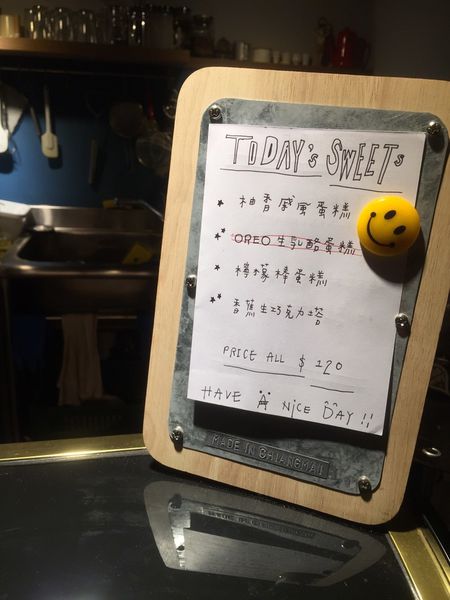 TODAY's SWEETs
柚香戚風蛋糕
OREO生乳酪蛋糕
檸檬棒蛋糕
香蕉生巧克力塔
PRICE ALL $ 120
HAVE A NiCE DAY !!
MADE IN CHIANGMAI